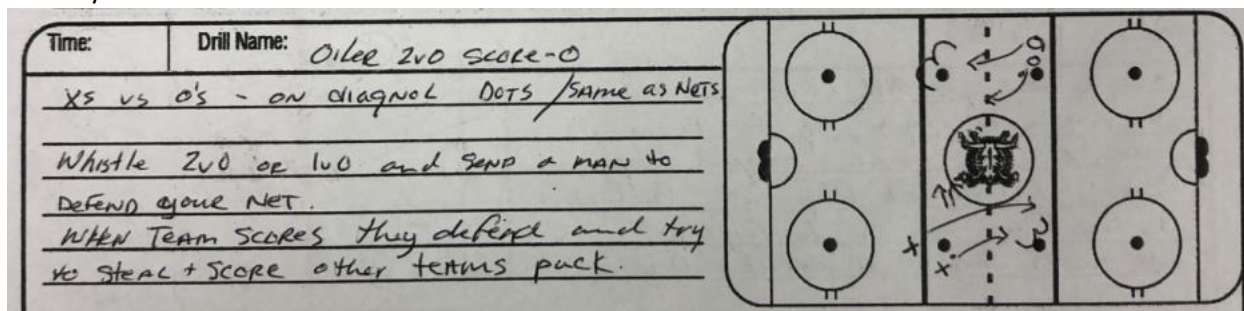 Time:
Drill Name: Oiler 2v0 Score-O
Xs vs O's - on diagnol Dots / Same as Nets
Whistle 2v0 or 1v0 and send a man to
Defend your Net.
When Team Scores they defend and try
to steal + Score other teams puck.
O
O
X
X